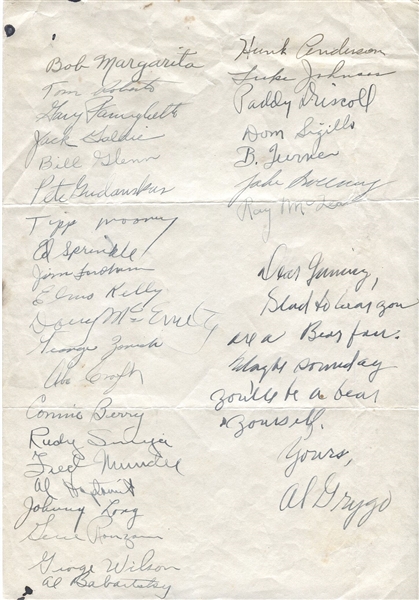 Bob Margarita
Tom Roberts
Gary Famiglietti
Jack Goldie
Bill Glenn
Pete Gudauskas
Tipp Mooney
Ed Sprinkle
Jim Fordham
Elmo Kelly
Doug McEnulty
George Zorich
Abe Croft
Connie Berry
Rudy Smeja
Fred Mundee
Al
Johnny Long
Gene Ronzani
George Wilson
Al Babartsky
Hunk Anderson
Luke Johnsos
Paddy Driscoll
Dom Sigillo
B. Turner
Jake Sweeney
Ray McLean
Dear Jimmy,
Glad to hear you
are a Bear fan.
Maybe someday
you'll be a bear
yourself.
Yours,
Al Grygo